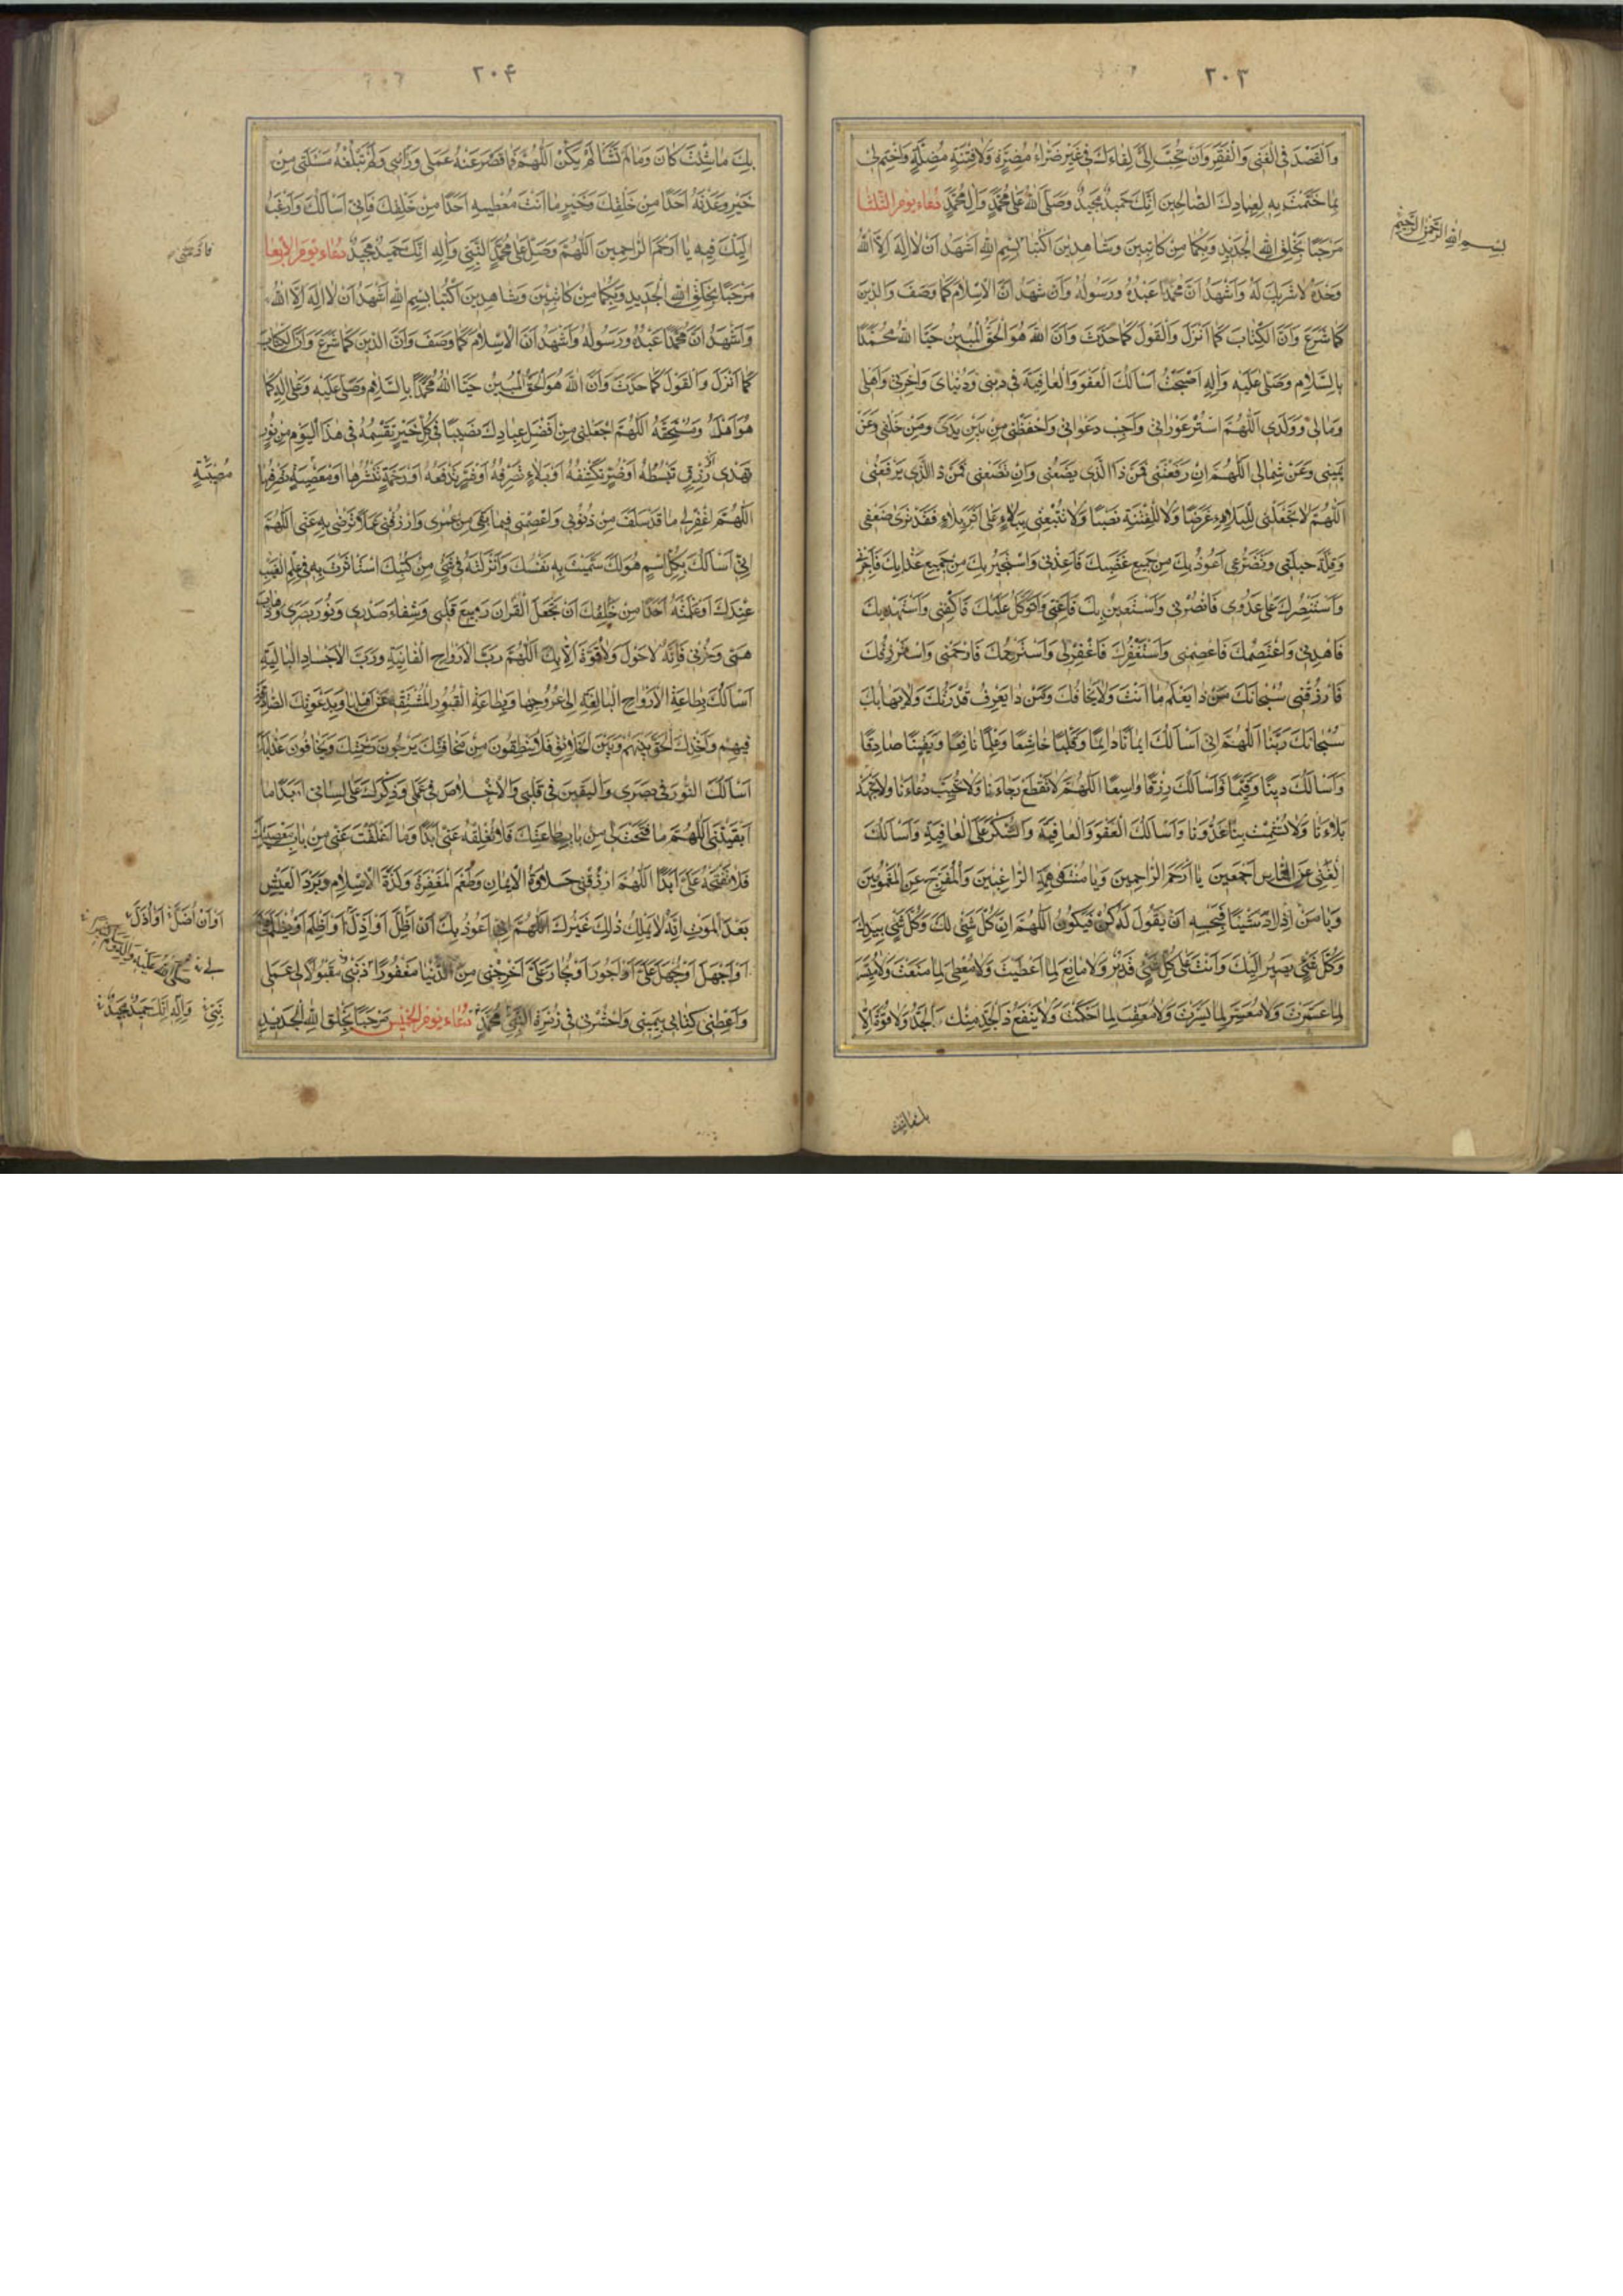 ٢٠٣
وَالْقَصْدَ فِی الْغِنٰی وَالْفَقْرِ وَاَنْ تُحَبِّبَ اِلَیَّ لِقٰاءَكَ فِی غَیْرِ ضَرّٰاءَ مُضِرَّةٍ وَلٰا فِتْنَةٍ مُضِلَّةٍ وَاخْتِمْ لِی
بِمٰا خَتَمْتَ بِهِ لِعِبٰادِكَ الصّٰالِحِینَ اِنَّكَ حَمِیدٌ مَجِیدٌ وَصَلَّی اللهُ عَلٰی مُحَمَّدٍ وَاٰلِ مُحَمَّدٍ دُعٰاء یَوْمِ الثَّلٰثٰا
مَرْحَبًا بِخَلْقِ اللهِ الْجَدِیدِ وَبِكُمٰا مِنْ كٰاتِبَیْنِ وَشٰاهِدَیْنِ اُكْتُبٰا بِسْمِ اللهِ اَشْهَدُ اَنْ لٰا اِلٰهَ اِلَّا اللهُ
بسم الله الرحمن الرحیم
وَحْدَهُ لٰا شَرِیكَ لَهُ وَاَشْهَدُ اَنَّ مُحَمَّدًا عَبْدُهُ وَرَسُولُهُ وَاَشْهَدُ اَنَّ الْاِسْلٰامَ كَمٰا وَصَفَ وَالدِّینَ
كَمٰا شَرَعَ وَاَنَّ الْكِتٰابَ كَمٰا اَنْزَلَ وَالْقَوْلَ كَمٰا حَدَّثَ وَاَنَّ اللهَ هُوَ الْحَقُّ الْمُبِینُ حَیَّا اللهُ مُحَمَّدًا
بِالسَّلٰامِ وَصَلّٰی عَلَیْهِ وَاٰلِهِ اَصْبَحْتُ اَسْاَلُكَ الْعَفْوَ وَالْعٰافِیَةَ فِی دِینِی وَدُنْیٰایَ وَاٰخِرَتِی وَاَهْلِی
وَمٰالِی وَوَلَدِی اَللّٰهُمَّ اسْتُرْ عَوْرٰاتِی وَاَجِبْ دَعَوٰاتِی وَاحْفَظْنِی مِنْ بَیْنِ یَدَیَّ وَمِنْ خَلْفِی وَعَنْ
یَمِینِی وَعَنْ شِمٰالِی اَللّٰهُمَّ اِنْ رَفَعْتَنِی فَمَنْ ذَا الَّذِی یَضَعُنِی وَاِنْ تَضَعْنِی فَمَنْ ذَا الَّذِی یَرْفَعُنِی
اَللّٰهُمَّ لٰا تَجْعَلْنِی لِلْبَلٰاءِ غَرَضًا وَلٰا لِلْفِتْنَةِ نَصَبًا وَلٰا تُتْبِعْنِی بِبَلٰاءٍ عَلٰی اَثَرِ بَلٰاءٍ فَقَدْ تَرٰی ضَعْفِی
وَقِلَّةَ حِیلَتِی وَتَضَرُّعِی اَعُوذُ بِكَ مِنْ جَمِیعِ غَضَبِكَ فَاَعِذْنِی وَاَسْتَجِیرُ بِكَ مِنْ جَمِیعِ عَذٰابِكَ فَاَجِرْنِی
وَاَسْتَنْصِرُكَ عَلٰی عَدُوِّی فَانْصُرْنِی وَاَسْتَعِینُ بِكَ فَاَعِنِّی وَاَتَوَكَّلُ عَلَیْكَ فَاكْفِنِی وَاَسْتَهْدِیكَ
فَاهْدِنِی وَاَعْتَصِمُكَ فَاعْصِمْنِی وَاَسْتَغْفِرُكَ فَاغْفِرْ لِی وَاَسْتَرْحِمُكَ فَارْحَمْنِی وَاَسْتَرْزِقُكَ
فَارْزُقْنِی سُبْحٰانَكَ مَنْ ذٰا یَعْلَمُ مٰا اَنْتَ وَلٰا یَخٰافُكَ وَمَنْ ذٰا یَعْرِفُ قُدْرَتَكَ وَلٰا یَهٰابُكَ
سُبْحٰانَكَ رَبَّنٰا اَللّٰهُمَّ اِنِّی اَسْاَلُكَ اِیمٰانًا دٰائِمًا وَقَلْبًا خٰاشِعًا وَعِلْمًا نٰافِعًا وَیَقِینًا صٰادِقًا
وَاَسْاَلُكَ دِینًا وَقَیِّمًا وَاَسْاَلُكَ رِزْقًا وٰاسِعًا اَللّٰهُمَّ لٰا تَقْطَعْ رَجٰاءَنٰا وَلٰا تُخَیِّبْ دُعٰاءَنٰا وَلٰا تُجْهِدْ
بَلٰاءَنٰا وَلٰا تُشْمِتْ بِنٰا عَدُوَّنٰا وَاَسْاَلُكَ الْعَفْوَ وَالْعٰافِیَةَ وَالشُّكْرَ عَلَی الْعٰافِیَةِ وَاَسْاَلُكَ
الْغِنٰی عَنِ النّٰاسِ اَجْمَعِینَ یٰا اَرْحَمَ الرّٰاحِمِینَ وَیٰا مُنْتَهٰی هِمَّةِ الرّٰاغِبِینَ وَالْمُفَرِّجُ عَنِ الْمَغْمُومِینَ
وَیٰا مَنْ اِذٰا اَرٰادَ شَیْئًا فَحَسْبُهُ اَنْ یَقُولَ لَهُ كُنْ فَیَكُونُ اَللّٰهُمَّ اِنَّ كُلَّ شَیْءٍ لَكَ وَكُلَّ شَیْءٍ بِیَدِكَ
وَكُلَّ شَیْءٍ یَصِیرُ اِلَیْكَ وَاَنْتَ عَلٰی كُلِّ شَیْءٍ قَدِیرٌ وَلٰا مٰانِعَ لِمٰا اَعْطَیْتَ وَلٰا مُعْطِیَ لِمٰا مَنَعْتَ وَلٰا مُیَسِّرَ
لِمٰا عَسَّرْتَ وَلٰا مُعَسِّرَ لِمٰا یَسَّرْتَ وَلٰا مُعَقِّبَ لِمٰا حَكَمْتَ وَلٰا یَنْفَعُ ذَا الْجَدِّ مِنْكَ الْجَدُّ وَلٰا قُوَّةَ اِلّٰا
٢٠۴
بِكَ مٰا شِئْتَ كٰانَ وَمٰا لَمْ تَشَأْ لَمْ یَكُنْ اَللّٰهُمَّ فَمٰا قَصُرَ عَنْهُ عَمَلِی وَرَأْیِی وَلَمْ تَبْلُغْهُ مَسْئَلَتِی مِنْ
خَیْرٍ وَعَدْتَهُ اَحَدًا مِنْ خَلْقِكَ وَخَیْرٍ مٰا اَنْتَ مُعْطِیهِ اَحَدًا مِنْ خَلْقِكَ فَاِنِّی اَسْاَلُكَ وَاَرْغَبُ
اِلَیْكَ فِیهِ یٰا اَرْحَمَ الرّٰاحِمِینَ اَللّٰهُمَّ وَصَلِّ عَلٰی مُحَمَّدٍ النَّبِیِّ وَاٰلِهِ اِنَّكَ حَمِیدٌ مَجِیدٌ دُعٰاء یَوْمِ الْاَرْبَعٰا
مَرْحَبًا بِخَلْقِ اللهِ الْجَدِیدِ وَبِكُمٰا مِنْ كٰاتِبَیْنِ وَشٰاهِدَیْنِ اُكْتُبٰا بِسْمِ اللهِ اَشْهَدُ اَنْ لٰا اِلٰهَ اِلَّا اللهُ
وَاَشْهَدُ اَنَّ مُحَمَّدًا عَبْدُهُ وَرَسُولُهُ وَاَشْهَدُ اَنَّ الْاِسْلٰامَ كَمٰا وَصَفَ وَاَنَّ الدِّینَ كَمٰا شَرَعَ وَاَنَّ الْكِتٰابَ
كَمٰا اَنْزَلَ وَالْقَوْلَ كَمٰا حَدَّثَ وَاَنَّ اللهَ هُوَ الْحَقُّ الْمُبِینُ حَیَّا اللهُ مُحَمَّدًا بِالسَّلٰامِ وَصَلّٰی عَلَیْهِ وَعَلٰی اٰلِهِ كَمٰا
هُوَ اَهْلُهُ وَمُسْتَحِقُّهُ اَللّٰهُمَّ اجْعَلْنِی مِنْ اَفْضَلِ عِبٰادِكَ نَصِیبًا فِی كُلِّ خَیْرٍ تَقْسِمُهُ فِی هٰذَا الْیَوْمِ مِنْ نُورٍ
تَهْدِی اَوْ رِزْقٍ تَبْسُطُهُ اَوْ ضُرٍّ تَكْشِفُهُ اَوْ بَلٰاءٍ تَصْرِفُهُ اَوْ شَرٍّ تَدْفَعُهُ اَوْ رَحْمَةٍ تَنْشُرُهٰا اَوْ مَعْصِیَةٍ تَصْرِفُهٰا
مُصِیبَةٍ
اَللّٰهُمَّ اغْفِرْ لِی مٰا قَدْ سَلَفَ مِنْ ذُنُوبِی وَاعْصِمْنِی فِیمٰا بَقِیَ مِنْ عُمْرِی وَارْزُقْنِی عَمَلًا تَرْضٰی بِهِ عَنِّی اَللّٰهُمَّ
اِنِّی اَسْاَلُكَ بِكُلِّ اسْمٍ هُوَ لَكَ سَمَّیْتَ بِهِ نَفْسَكَ وَاَنْزَلْتَهُ فِی شَیْءٍ مِنْ كُتُبِكَ اسْتَأْثَرْتَ بِهِ فِی عِلْمِ الْغَیْبِ
عِنْدَكَ اَوْ عَلَّمْتَهُ اَحَدًا مِنْ خَلْقِكَ اَنْ تَجْعَلَ الْقُرْاٰنَ رَبِیعَ قَلْبِی وَشِفٰاءَ صَدْرِی وَنُورَ بَصَرِی وَذَهٰابَ
هَمِّی وَحُزْنِی فَاِنَّهُ لٰا حَوْلَ وَلٰا قُوَّةَ اِلّٰا بِكَ اَللّٰهُمَّ رَبَّ الْاَرْوٰاحِ الْفٰانِیَةِ وَرَبَّ الْاَجْسٰادِ الْبٰالِیَةِ
اَسْاَلُكَ بِطٰاعَةِ الْاَرْوٰاحِ الْبٰالِغَةِ اِلٰی عُرُوجِهٰا وَبِطٰاعَةِ الْقُبُورِ الْمُنْشَقَّةِ عَنْ اَهْلِهٰا وَبِدَعْوَتِكَ الصّٰادِقَةِ
فِیهِمْ وَاَخْذِكَ الْحَقَّ بَیْنَهُمْ وَبَیْنَ الْخَلٰائِقِ فَلٰا یَنْطِقُونَ مِنْ مَخٰافَتِكَ یَرْجُونَ رَحْمَتَكَ وَیَخٰافُونَ عَذٰابَكَ
اَسْاَلُكَ النُّورَ فِی بَصَرِی وَالْیَقِینَ فِی قَلْبِی وَالْاِخْلٰاصَ فِی عَمَلِی وَذِكْرَكَ عَلٰی لِسٰانِی اَبَدًا مٰا
اَبْقَیْتَنِی اَللّٰهُمَّ مٰا فَتَحْتَ لِی مِنْ بٰابِ طٰاعَتِكَ فَلٰا تُغْلِقْهُ عَنِّی اَبَدًا وَمٰا اَغْلَقْتَ عَنِّی مِنْ بٰابِ مَعْصِیَتِكَ
فَلٰا تَفْتَحْهُ عَلَیَّ اَبَدًا اَللّٰهُمَّ ارْزُقْنِی حَلٰاوَةَ الْاِیمٰانِ وَطَعْمَ الْمَغْفِرَةِ وَلَذَّةَ الْاِسْلٰامِ وَبَرْدَ الْعَیْشِ
بَعْدَ الْمَوْتِ اِنَّهُ لٰا یَمْلِكُ ذٰلِكَ غَیْرُكَ اَللّٰهُمَّ اِنِّی اَعُوذُ بِكَ اَنْ اَضِلَّ اَوْ اَذِلَّ اَوْ اَظْلِمَ اَوْ اُظْلَمَ
اَوْ اَنْ اُضَلَّ اَوْ اُذَلَّ
اَوْ اَجْهَلَ اَوْ یُجْهَلَ عَلَیَّ اَوْ اَجُورَ اَوْ یُجٰارَ عَلَیَّ اَخْرِجْنِی مِنَ الدُّنْیٰا مَغْفُورًا ذَنْبِی مَقْبُولًا لِی عَمَلِی
وَاَعْطِنِی كِتٰابِی بِیَمِینِی وَاحْشُرْنِی فِی زُمْرَةِ النَّبِیِّ مُحَمَّدٍ دُعٰاء یَوْمِ الْخَمِیسِ مَرْحَبًا بِخَلْقِ اللهِ الْجَدِیدِ
وَاٰلِهِ اِنَّكَ حَمِیدٌ مَجِیدٌ